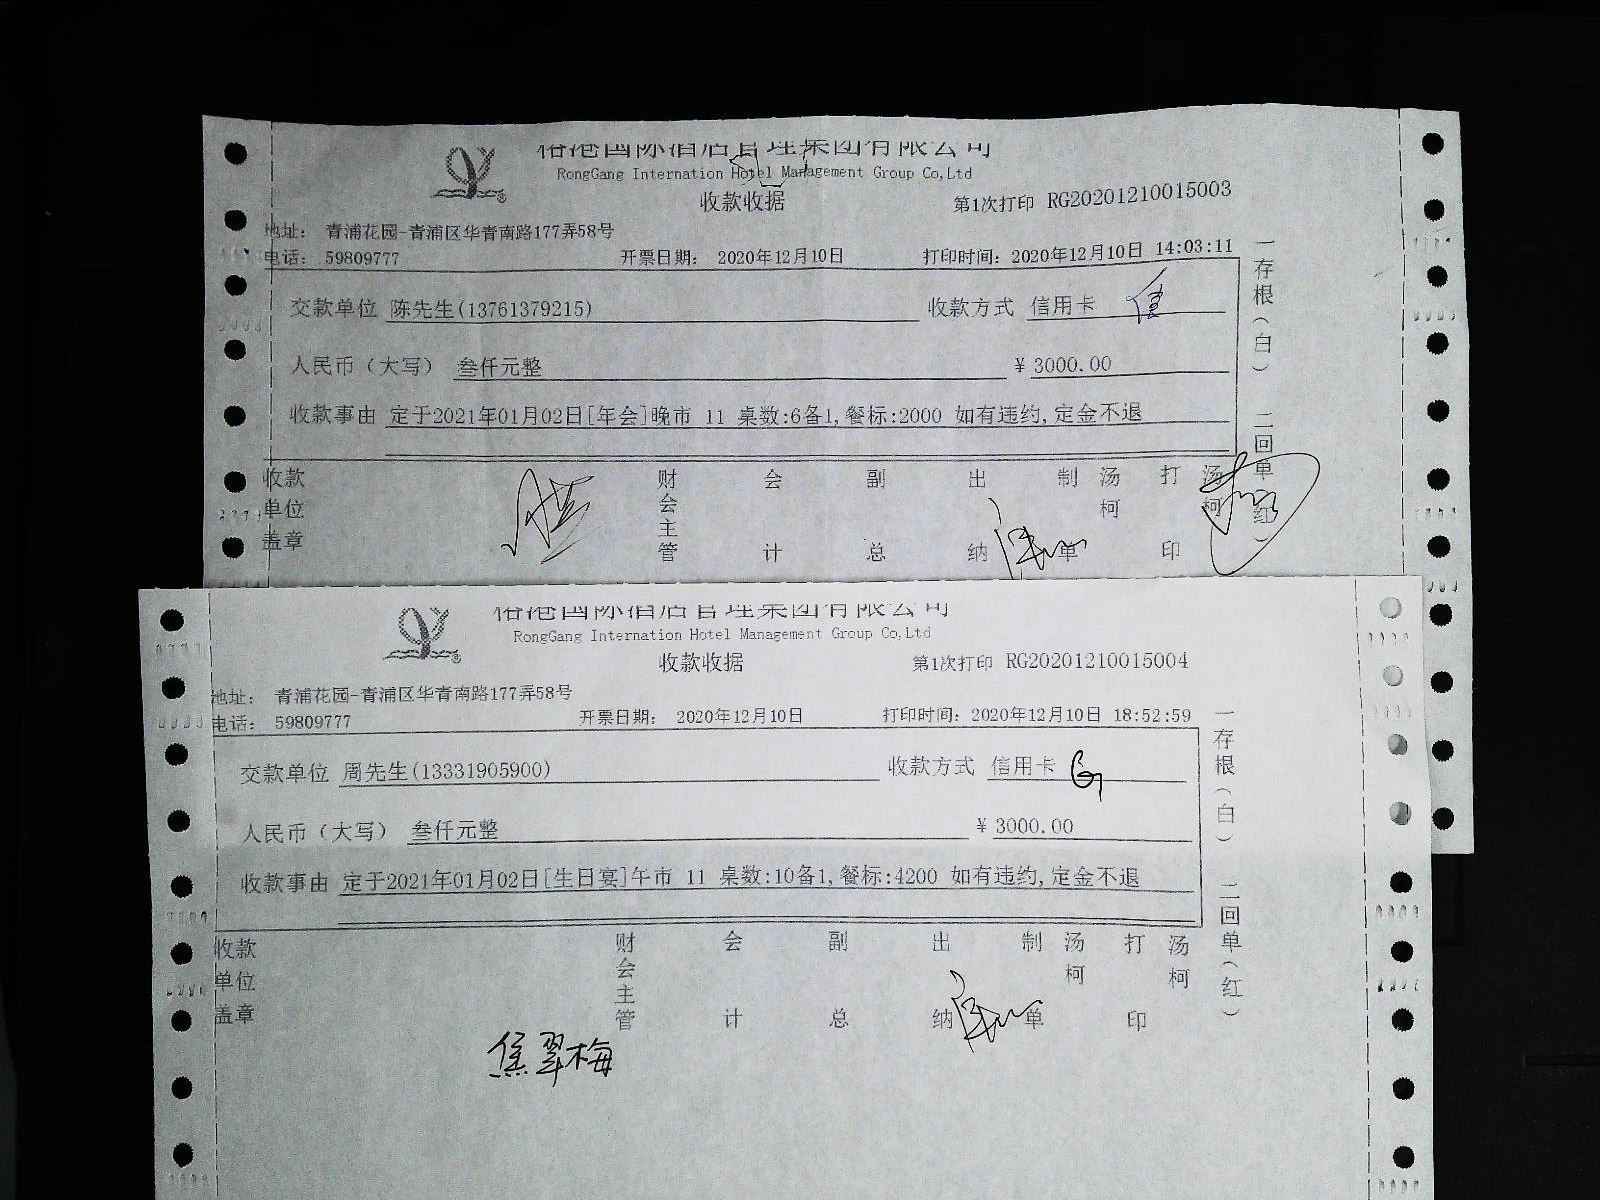 榕港国际酒店管理集团有限公司
RongGang Internation Hotel Management Group Co,Ltd
收款收据 第1次打印 RG20201210015003
地址: 青浦花园-青浦区华青南路177弄58号
电话: 59809777 开票日期: 2020年12月10日 打印时间: 2020年12月10日 14:03:11
交款单位 陈先生(13761379215) 收款方式 信用卡 信
人民币（大写） 叁仟元整 ¥ 3000.00
收款事由 定于2021年01月02日[年会]晚市 11 桌数:6备1,餐标:2000 如有违约,定金不退
收款单位盖章 财会主管 会计 副总 出纳 制单 汤柯 打印 汤柯
一存根（白） 二回单（红）
榕港国际酒店管理集团有限公司
RongGang Internation Hotel Management Group Co,Ltd
收款收据 第1次打印 RG20201210015004
地址: 青浦花园-青浦区华青南路177弄58号
电话: 59809777 开票日期: 2020年12月10日 打印时间: 2020年12月10日 18:52:59
交款单位 周先生(13331905900) 收款方式 信用卡
人民币（大写） 叁仟元整 ¥ 3000.00
收款事由 定于2021年01月02日[生日宴]午市 11 桌数:10备1,餐标:4200 如有违约,定金不退
收款单位盖章 财会主管 会计 副总 出纳 制单 汤柯 打印 汤柯
焦翠梅
一存根（白） 二回单（红）